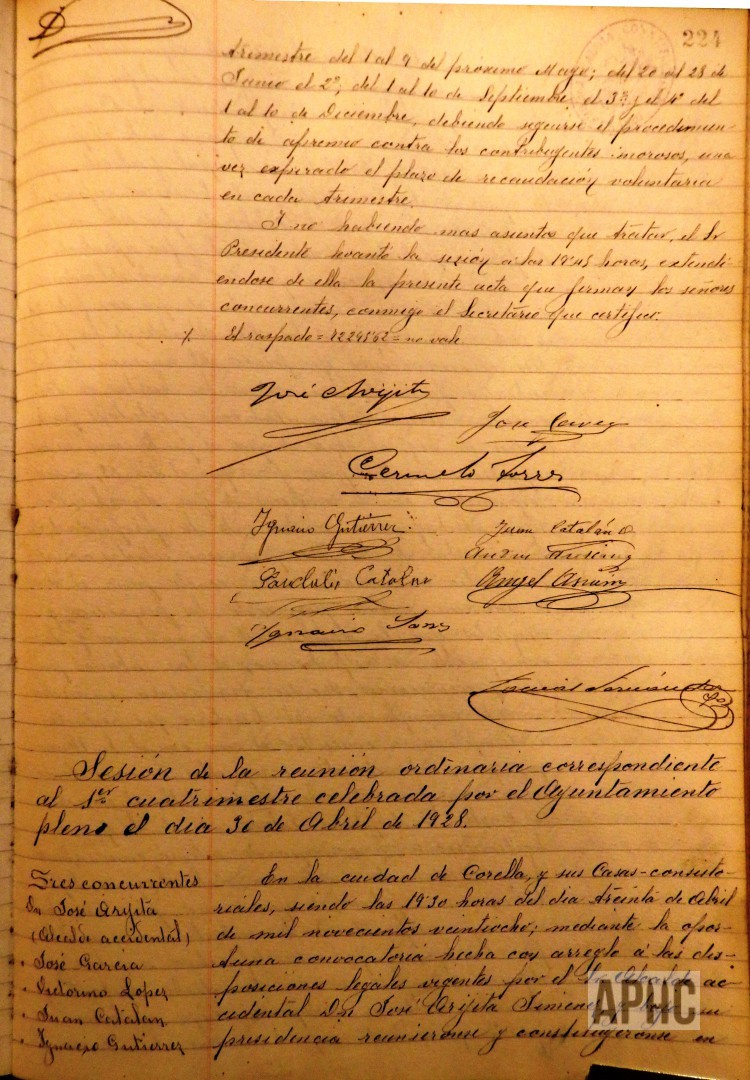 224
trimestre del 1 al 9 del próximo Mayo; del 20 al 28 de
Junio el 2º, del 1 al 10 de Septiembre el 3º y el 4º del
1 al 10 de Diciembre, debiendo seguirse el procedimien-
to de apremio contra los contribuyentes morosos, una
vez expirado el plazo de recaudación voluntaria
en cada trimestre.
Y no habiendo mas asuntos que tratar, el Sr
Presidente levantó la sesión a las 19'45 horas, extendi-
endose de ella la presente acta que firman los señores
concurrentes, conmigo el Secretario que certifico.
El raspado = = no vale
José Arijita
José
Carmelo Torres
Ignacio Gutiérrez
Juan Catalán
Catalán
Angel
Ignacio Sanz
Sesión de la reunión ordinaria correspondiente
al 1er cuatrimestre celebrada por el Ayuntamiento
pleno el dia 30 de Abril de 1928.
Sres concurrentes
Dn José Arijita
(Alcalde accidental)
" José García
" Victorino Lopez
" Juan Catalán
" Ignacio Gutierrez
En la ciudad de Corella, y sus Casas-consisto-
riales, siendo las 19'30 horas del dia treinta de Abril
de mil novecientos veintiocho; mediante la opor-
tuna convocatoria hecha con arreglo á las dis-
posiciones legales vigentes por el Sr Alcalde ac-
cidental Dn José Arijita Jimenez su
presidencia reunieronse y constituyeronse en
APHC